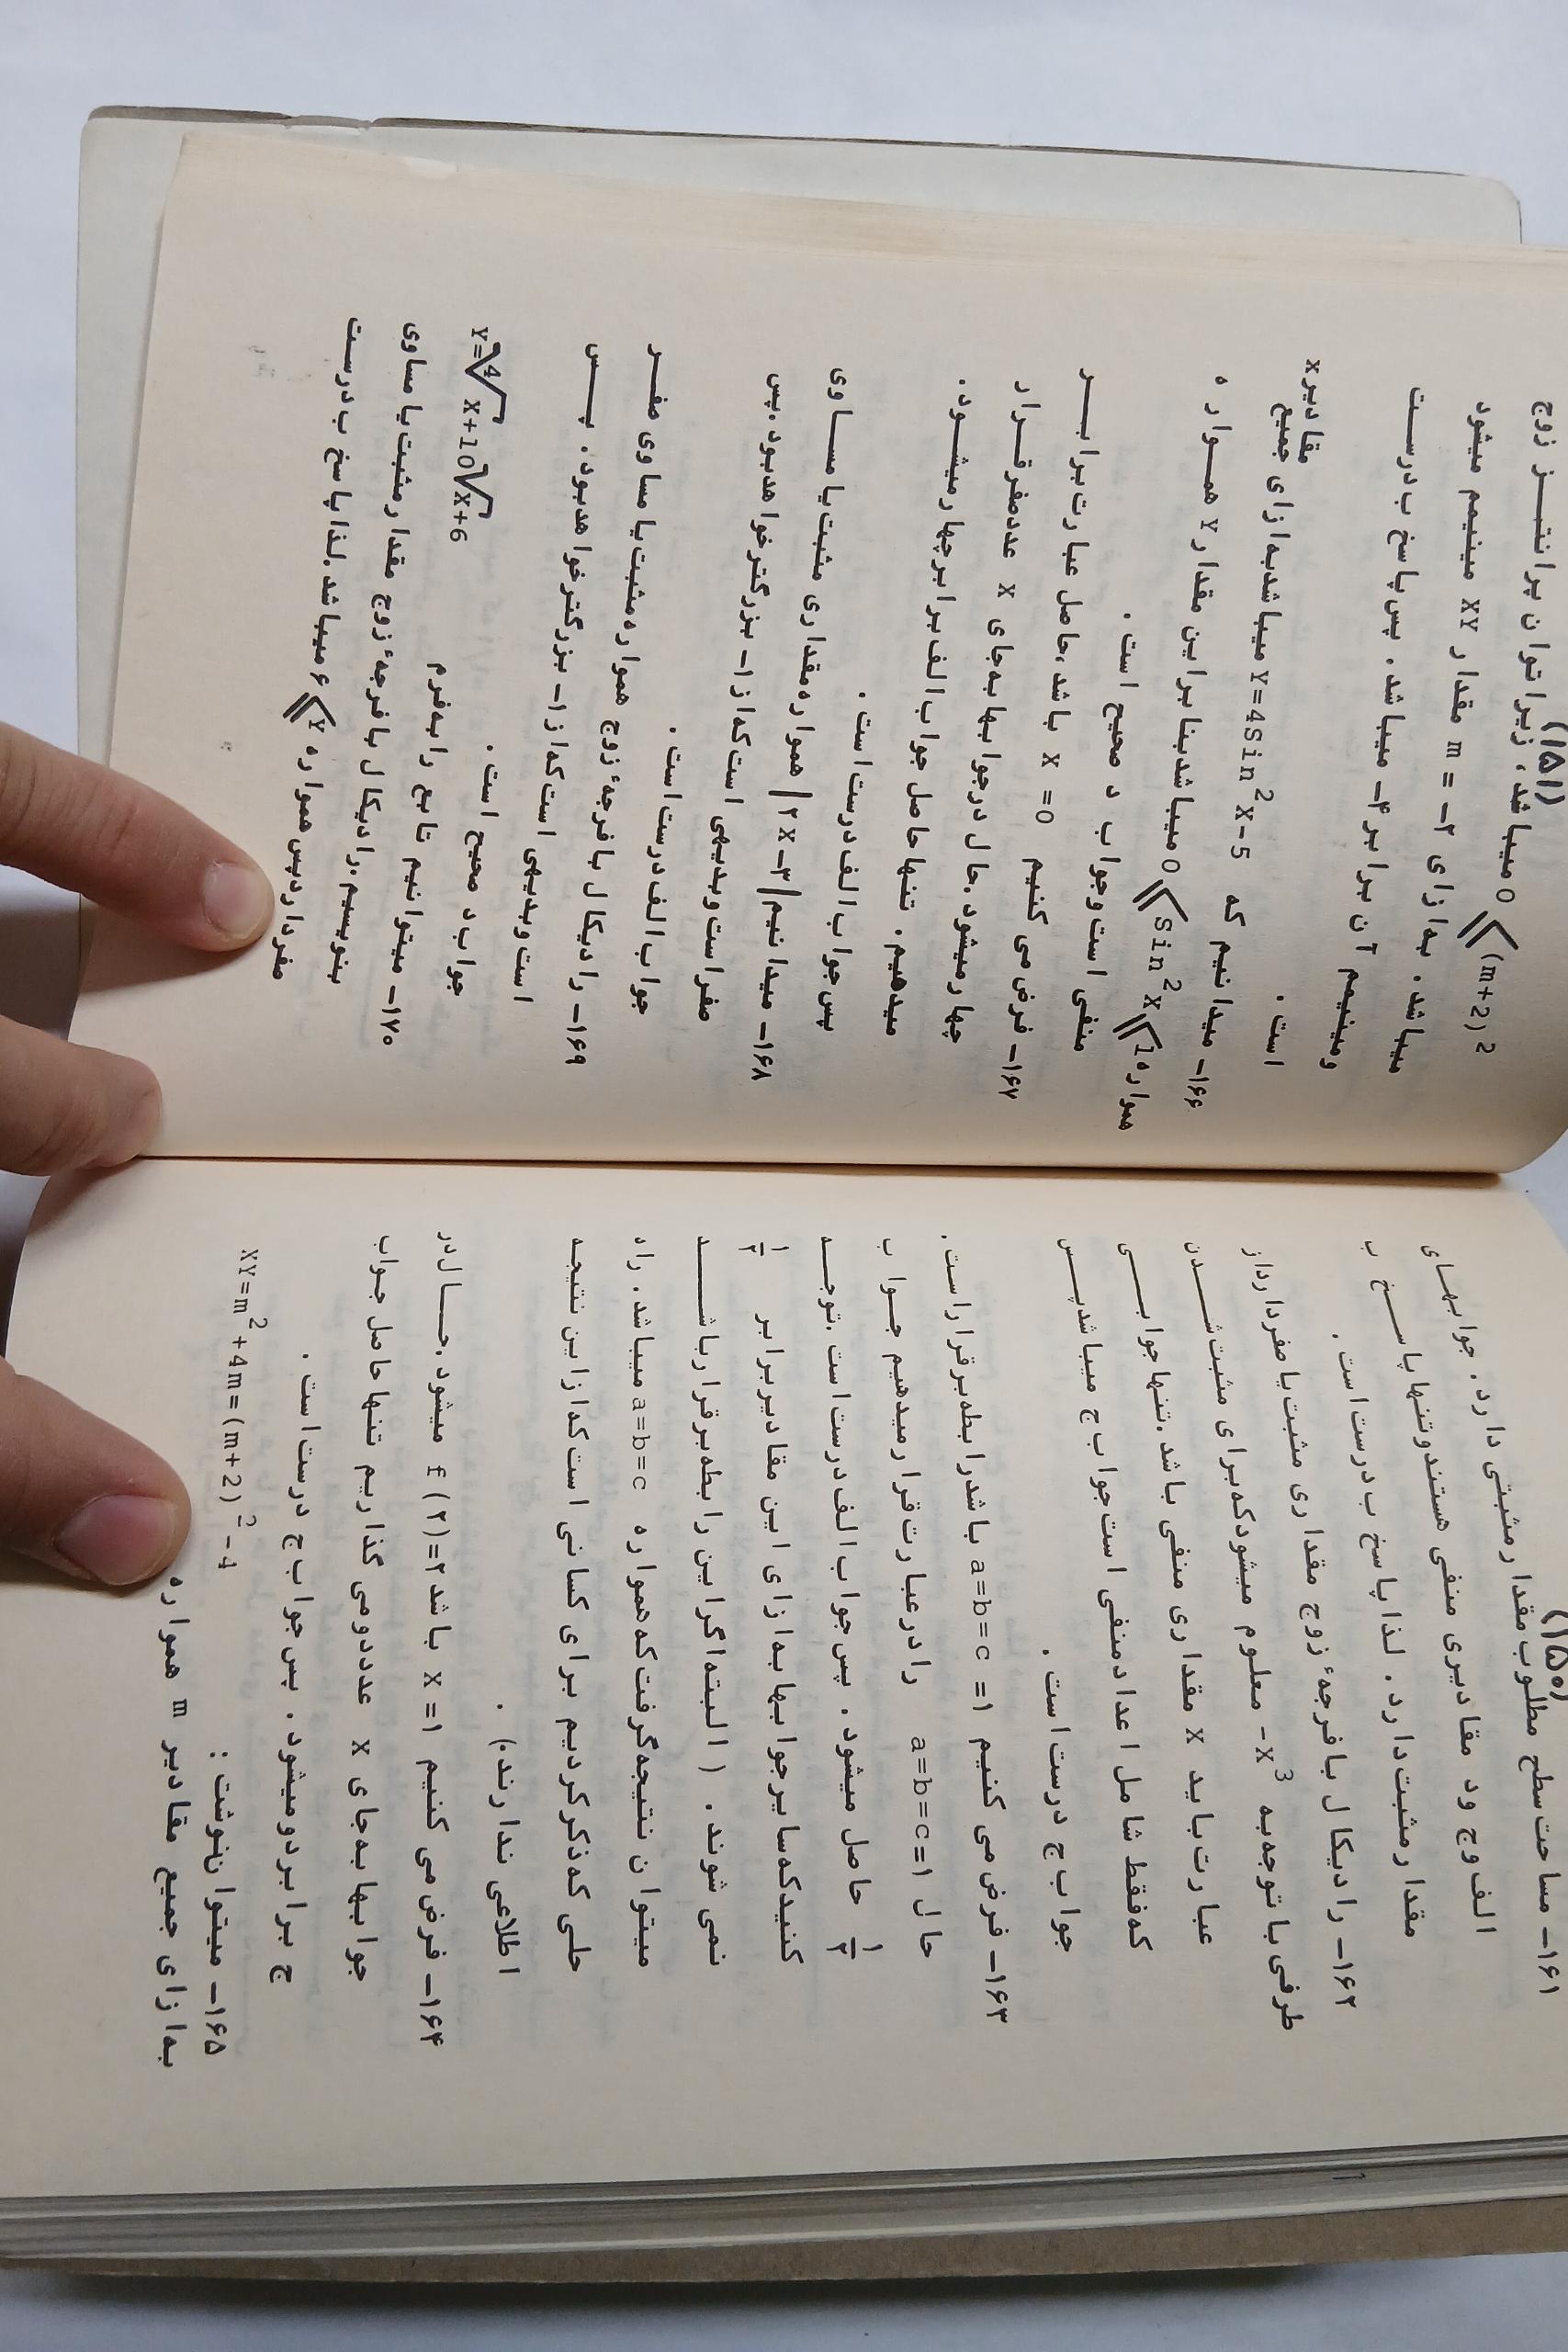 (۱۵۰)
۱۶۱- مساحت سطح مطلوب مقدار مثبتی دارد. جوابهای
الف وج ود مقادیری منفی هستند و تنها پاسخ ب
مقدار مثبت دارد. لذا پاسخ ب درست است.
۱۶۲- رادیکال با فرجهٔ زوج مقداری مثبت یا صفر دارد از
طرفی با توجه به -X³ معلوم میشود که برای مثبت شدن
عبارت باید X مقداری منفی باشد. تنها جوابی
که فقط شامل اعداد منفی است جواب ج میباشد پس
جواب ج درست است.
۱۶۳- فرض می کنیم a=b=c =۱ باشد رابطه برقرار است.
حال a=b=c=۱ را در عبارت قرار میدهیم جواب
۱/۲ حاصل میشود. پس جواب الف درست است. توجه
کنید که سایر جوابها به ازای این مقادیر برابر ۱/۲
نمی شوند. (البته اگر این رابطه برقرار باشد
میتوان نتیجه گرفت که همواره a=b=c میباشد. راه
حلی که ذکر کردیم برای کسانی است که از این نتیجه
اطلاعی ندارند).
۱۶۴- فرض می کنیم X =۱ باشد f(۲)=۲ میشود. حال در
جوابها به جای X عدد دو می گذاریم تنها حاصل جواب
ج برابر دو میشود. پس جواب ج درست است.
۱۶۵- میتوان نوشت: XY=m²+4m=(m+2)²-4
به ازای جمیع مقادیر m همواره
(۱۵۱)
0⩽(m+2)² میباشد، زیرا توان پرانتز زوج
میباشد. به ازای m = -۲ مقدار XY مینیمم میشود
و مینیمم آن برابر ۴- میباشد. پس پاسخ ب درست
است.
۱۶۶- میدانیم که Y=4Sin²X-5 میباشد به ازای جمیع مقادیر x
همواره 0⩽Sin²X⩽1 میباشد بنابراین مقدار Y همواره
منفی است و جواب د صحیح است.
۱۶۷- فرض می کنیم X =0 باشد، حاصل عبارت برابر
چهار میشود. حال در جوابها به جای X عدد صفر قرار
میدهیم. تنها حاصل جواب الف برابر چهار میشود.
پس جواب الف درست است.
۱۶۸- میدانیم |۲X-۳| همواره مقداری مثبت یا مساوی
صفر است و بدیهی است که از ۱- بزرگتر خواهد بود. پس
جواب الف درست است.
۱۶۹- رادیکال با فرجهٔ زوج همواره مثبت یا مساوی صفر
است و بدیهی است که از ۱- بزرگتر خواهد بود. پس
جواب د صحیح است.
۱۷۰- میتوانیم تابع را به فرم Y=⁴√X+10√X+6
بنویسیم. رادیکال با فرجهٔ زوج مقدار مثبت یا مساوی
صفر دارد پس همواره ۶⩽Y میباشد. لذا پاسخ ب درست